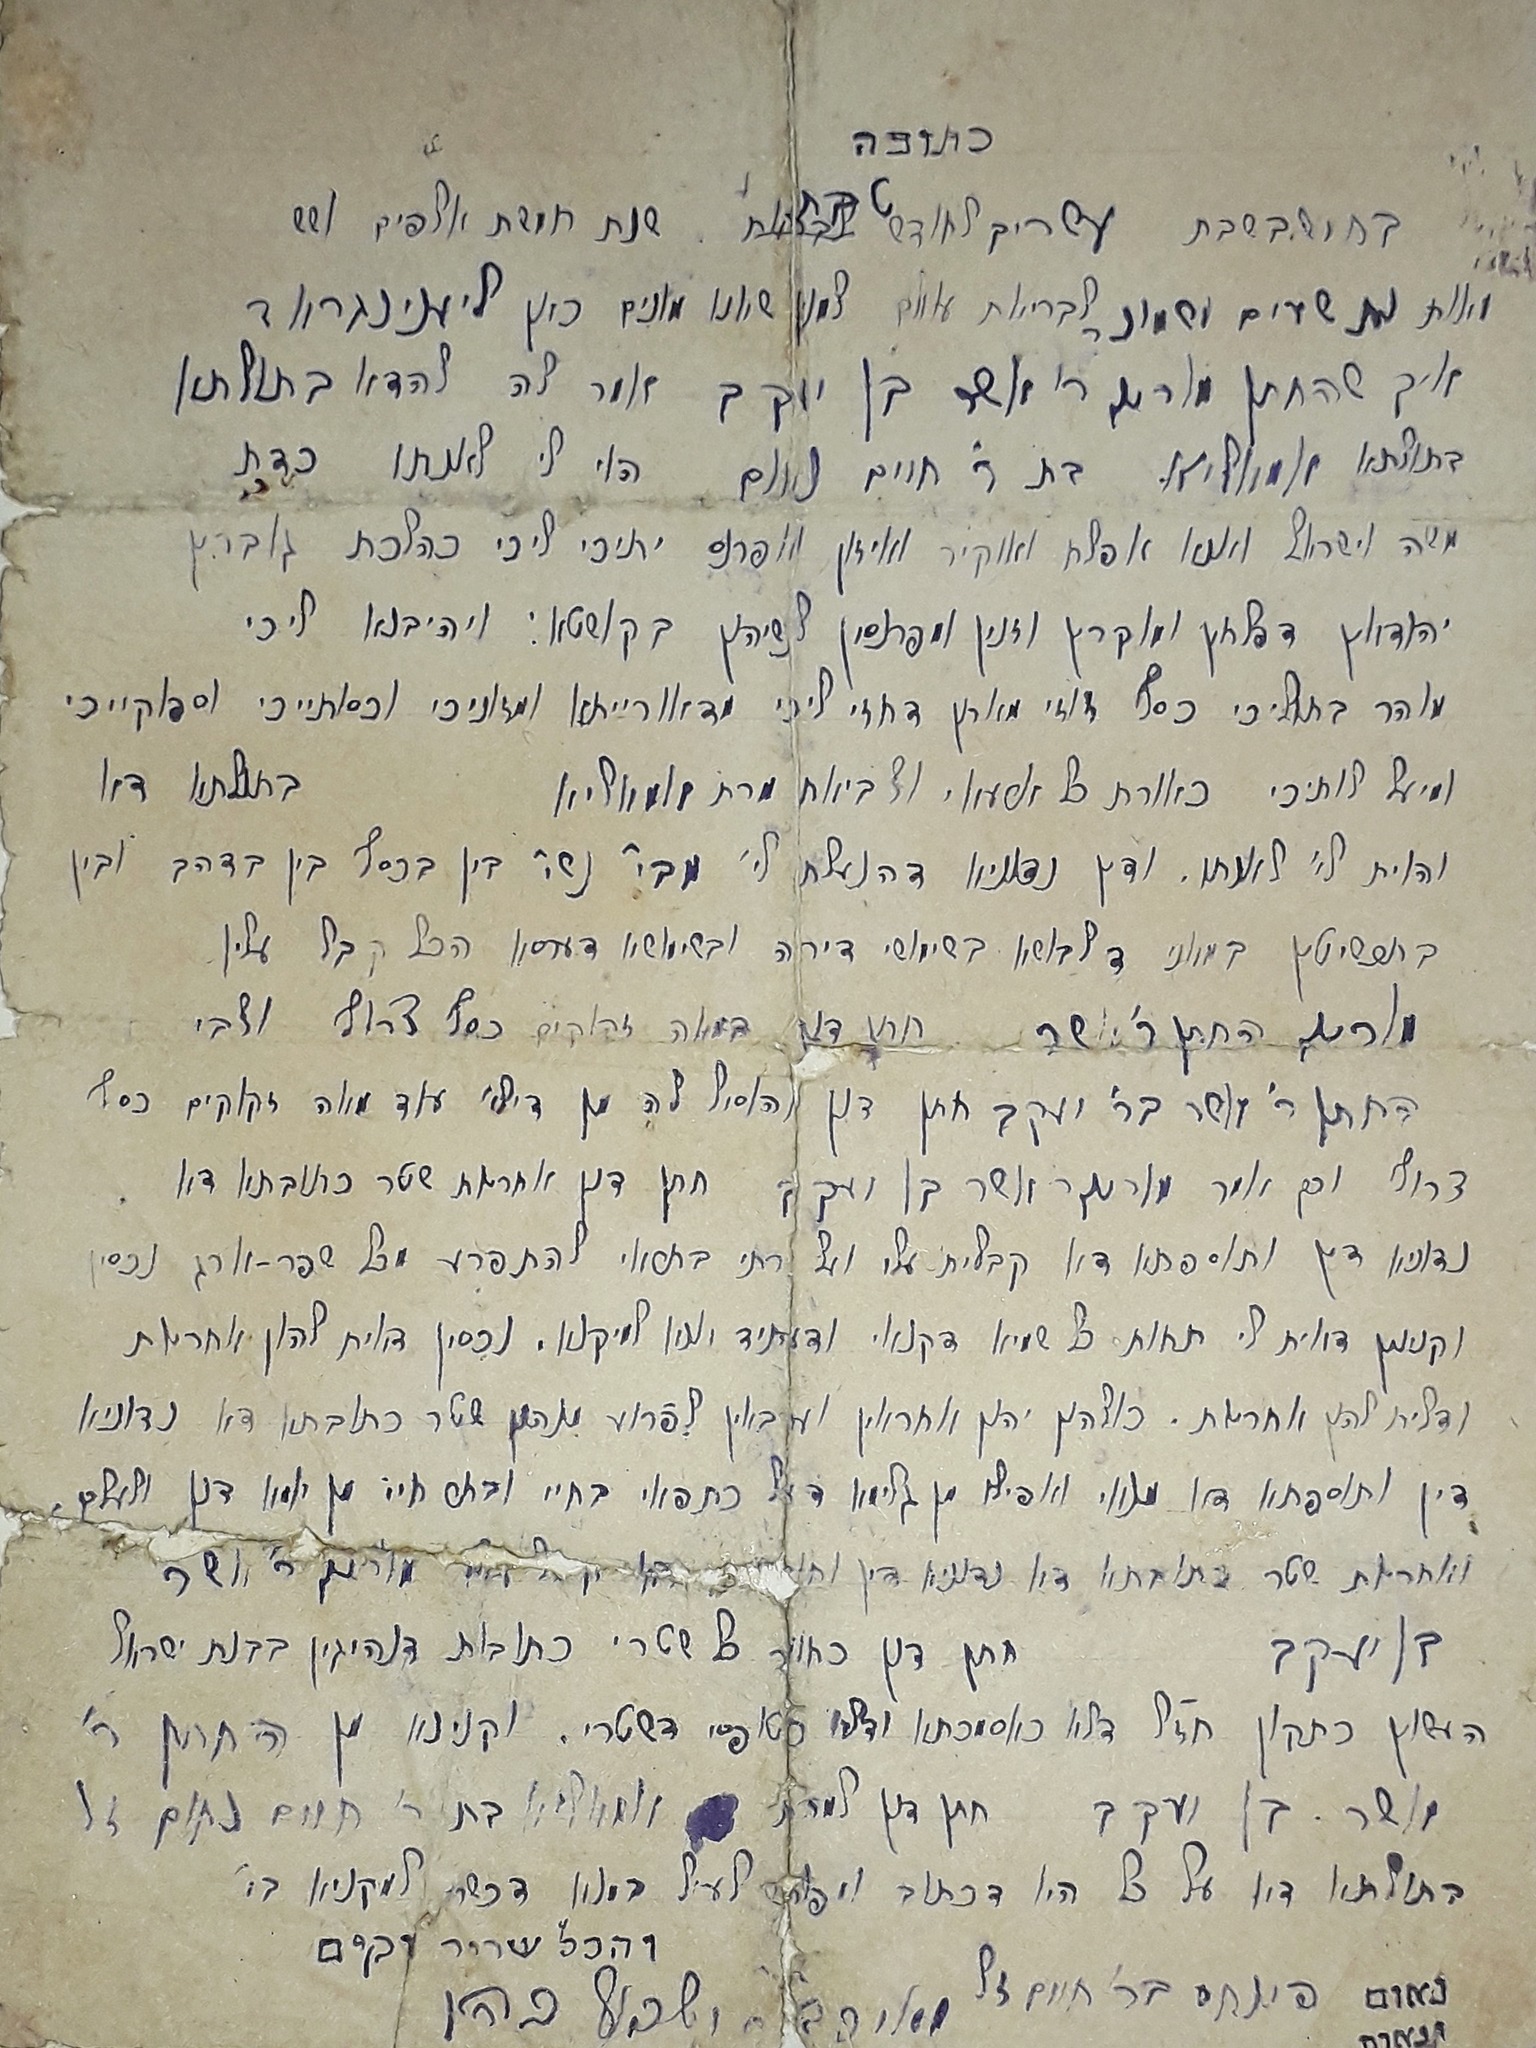 כתובה
בחמשבשבת עשרים לחודש טבת שנת חמשת אלפים ושש
מאות תשעים ושמונה לבריאת עולם למנין שאנו מונים כאן לענינגראד
איך שהחתן מורינו ר' אשר בן יעקב אמר לה להדא בתולתא
בתולתא בת ר' חיים נחום הוי לי לאנתו כדת
משה וישראל ואנא אפלח ואוקיר ואיזון ואפרנס יתיכי ליכי כהלכת גוברין
יהודאין דפלחין ומוקרין וזנין ומפרנסין לנשיהון בקושטא: ויהיבנא ליכי
מוהר בתוליכי כסף זוזי מאתן דחזי ליכי מדאורייתא ומזוניכי וכסותייכי וסופקייכי
ומיעל לותיכי כאורח כל ארעא וצביאת מרת בתולתא דא
והוית לי' לאנתו. ודין נדוניא דהנעלת לי' מבי נשה בין בכסף בין בדהב ובין
בתכשיטין במאני דלבושא בשימושי דירה ובשימושא דערסא הכל קבל עליו
מורינו החתן ר' אשר חתן דנן במאה זקוקים כסף צרוף וצבי
החתן ר' אשר בר' יעקב חתן דנן והוסיף לה מן דילי' עוד מאה זקוקים כסף
צרוף וכך אמר מורינו ר אשר בן יעקב חתן דנן אחריות שטר כתובתא דא
נדוניא דין ותוספתא דא קבלית עלי ועל ירתי בתראי להתפרע מכל שפר-ארג נכסין
וקנינין דאית לי תחות כל שמיא דקנאי ודעתיד אנא למיקנא. נכסין דאית להון אחריות
ודלית להון אחריות. כולהון יהון אחראין וערבאין לפרוע מנהון שטר כתובתא דא נדוניא
דין ותוספתא דא מנאי ואפילו מן גלימא דעל כתפאי בחיי ובתר חיי מן יומא דנן ולעלם.
ואחריות שטר כתובתא דא נדוניא דין דא מורינו ר' אשר
בן יעקב חתן דנן כחומר כל שטרי כתובות דנהיגין בבנות ישראל
העשוין כתקון חז"ל דלא כאסמכתא ודלא כטופסי דשטרי. וקנינא מן החתן ר'
אשר. בן יעקב חתן דנן למרת בת ר' חיים נחום זל
בתולתא דא על כל הא דכתוב ומפורש לעיל במנא דכשר למקניא בי'
והכל שריר וקים
נאום פינחס בר' חיים זל
נאום